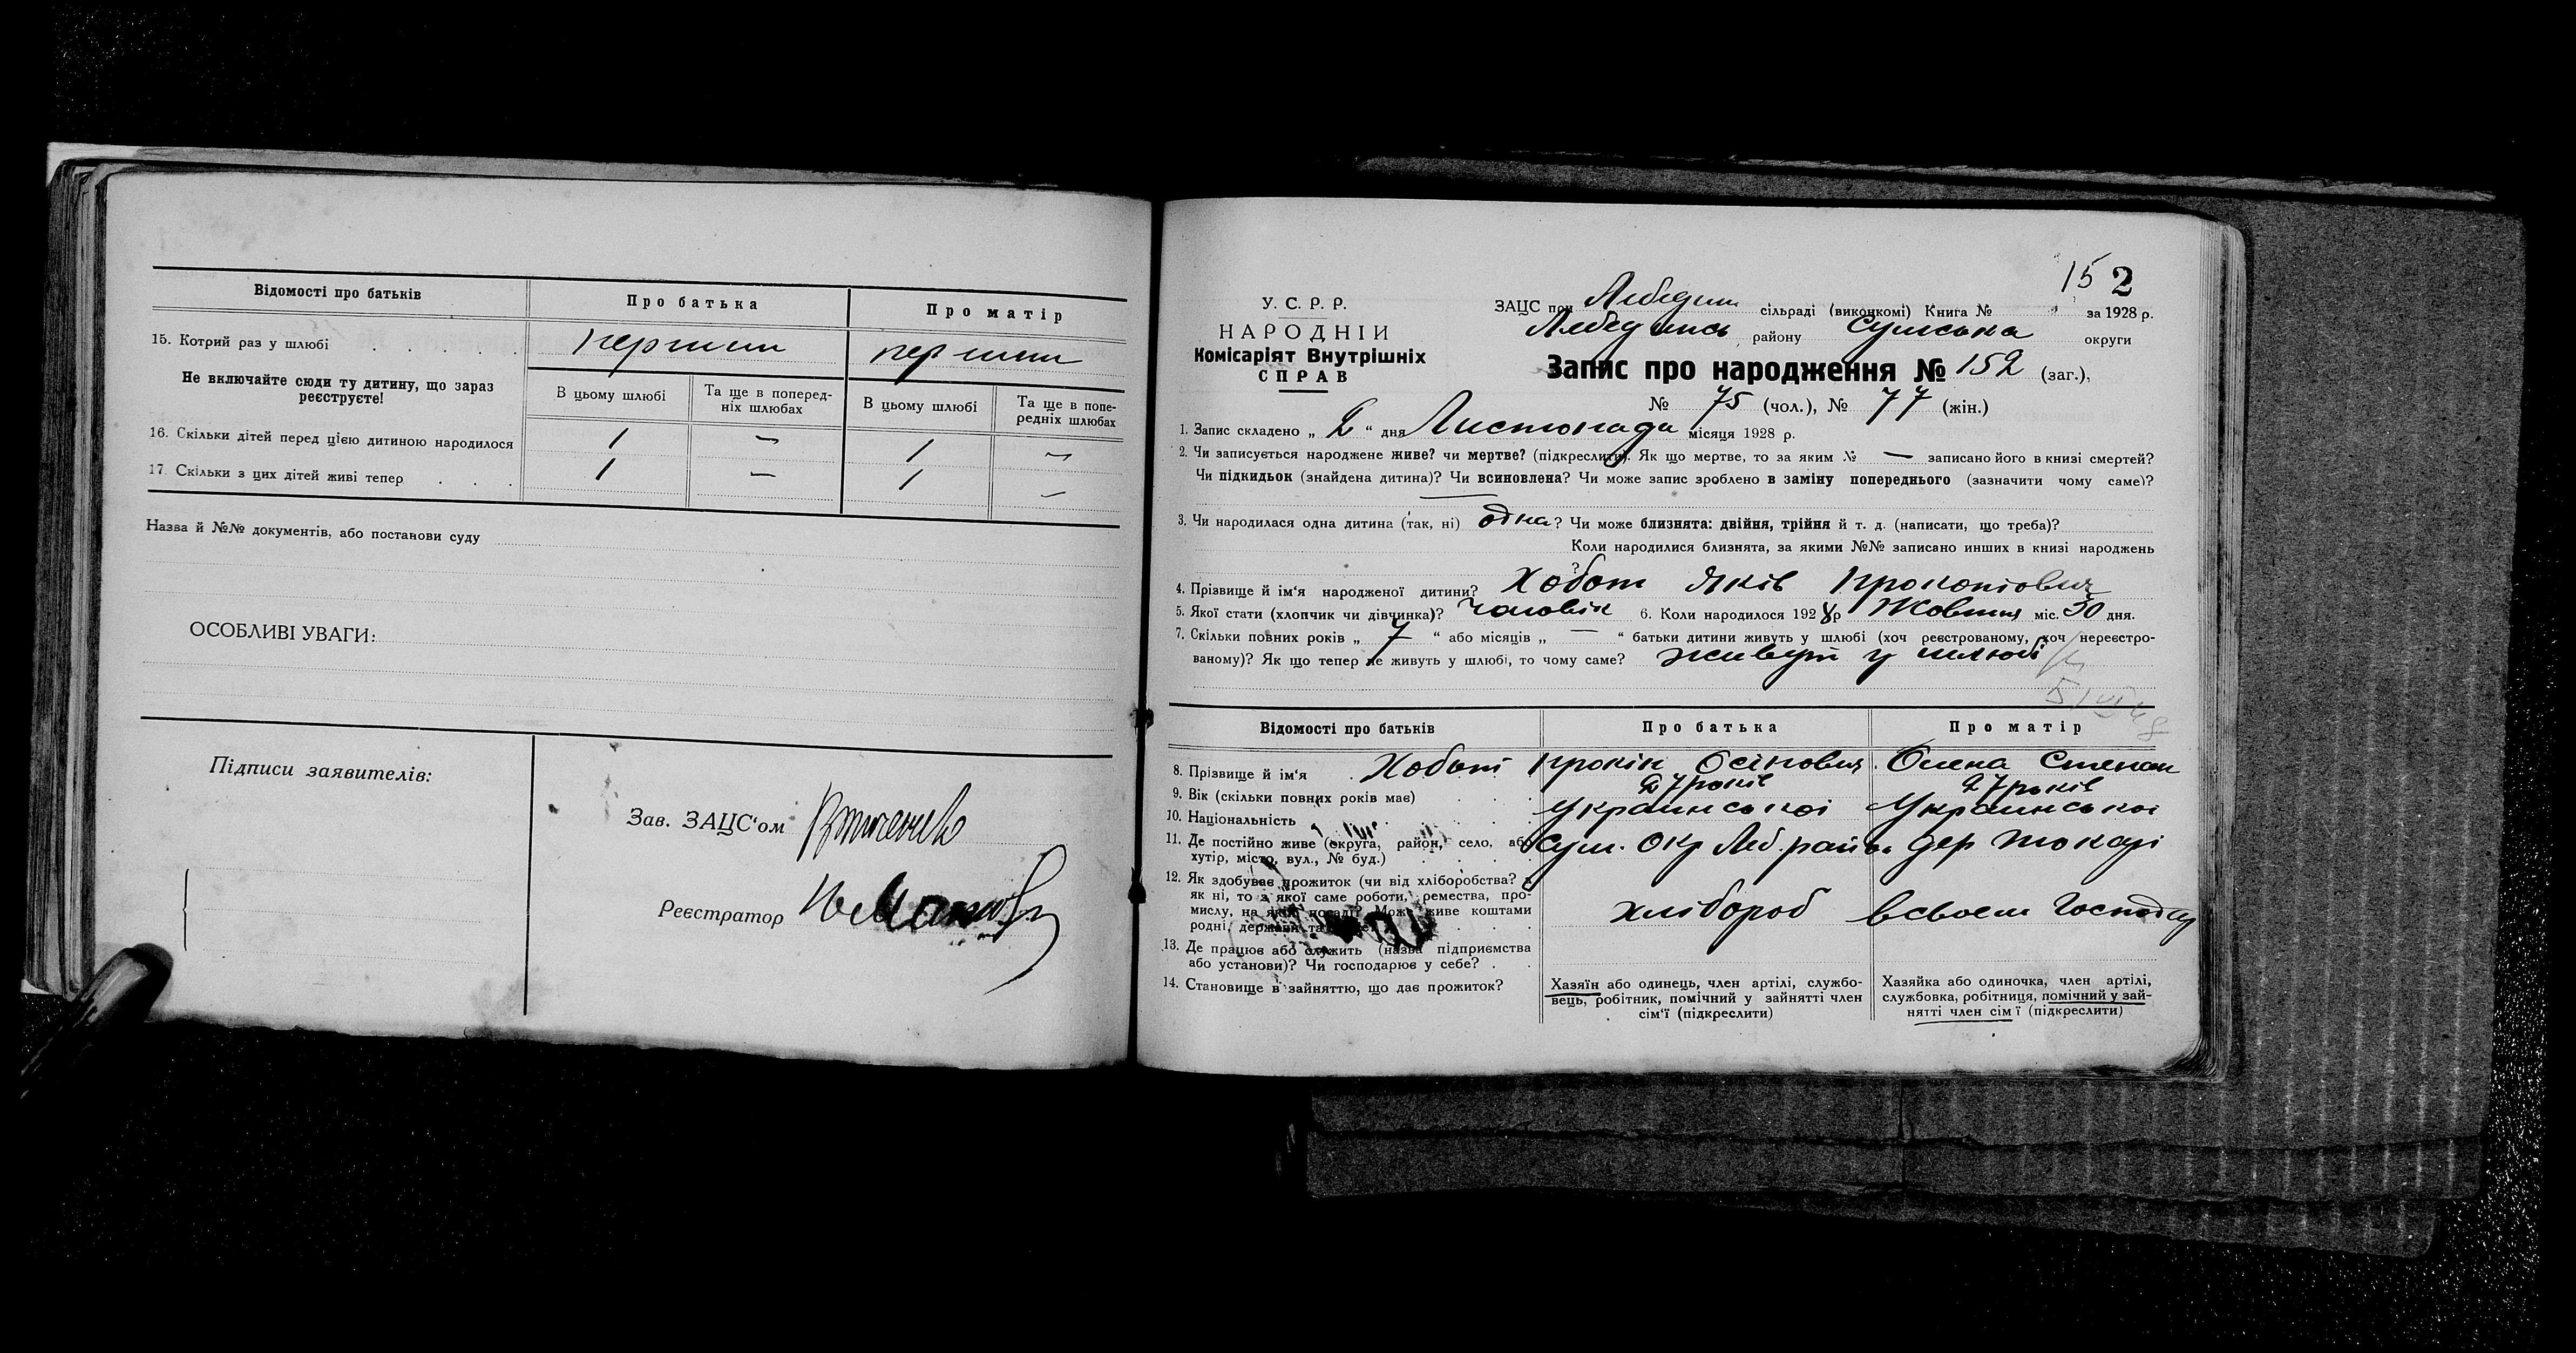 Відомості про батьків Про батька Про матір
15. Котрий раз у шлюбі першии першии
Не включайте сюди ту дитину, що зараз реєструєте!
В цьому шлюбі Та ще в поперед-ніх шлюбах В цьому шлюбі Та ще в попе-редніх шлюбах
16. Скільки дітей перед цією дитиною народилося 1 — 1 —
17. Скільки з цих дітей живі тепер 1 — 1 —
Назва й №№ документів, або постанови суду
ОСОБЛИВІ УВАГИ:
Підписи заявителів:
Зав. ЗАЦС'ом
Реєстратор
152
У. С. Р. Р.
НАРОДНІЙ
Комісаріят Внутрішніх
СПРАВ
ЗАЦС при Лебедин сільраді (виконкомі) Книга № за 1928 р.
району Сумська округи
Запис про народження № 152 (заг.),
№ 75 (чол.), № 77 (жін.)
1. Запис складено „ 2 “ дня Листопада місяця 1928 р.
2. Чи записується народжене живе? чи мертве? (підкреслити). Як що мертве, то за яким № — записано його в книзі смертей?
Чи підкидьок (знайдена дитина)? Чи всиновлена? Чи може запис зроблено в заміну попереднього (зазначити чому саме)?
3. Чи народилася одна дитина (так, ні) одна? Чи може близнята: двійня, трійня й т. д. (написати, що треба)?
Коли народилися близнята, за якими №№ записано инших в книзі народжень
?
4. Прізвище й ім'я народженої дитини? Хобот Яків Прокопович
5. Якої стати (хлопчик чи дівчинка)? чоловік 6. Коли народилося 1928 р Жовтня міс. 30 дня.
7. Скільки повних років „ 7 “ або місяців „ — “ батьки дитини живуть у шлюбі (хоч реєстрованому, хоч нереєстро-
ваному)? Як що тепер не живуть у шлюбі, то чому саме? живут у шлюбі
Відомості про батьків Про батька Про матір
8. Прізвище й ім'я Хобот Прокіп Осіпович Олена Степан
9. Вік (скільки повних років має) 27 років 27 років
10. Національність Украинськоі Украинськоі
11. Де постійно живе (округа, район, село, або
хутір, місто, вул., № буд.) Сум. Окр Леб. района дер Токарі
12. Як здобуває прожиток (чи від хліборобства? а
як ні, то з якої саме роботи, ремества, про-
мислу, на якій посаді? Може живе коштами
родні, держави та
хлібороб в своем Господар
13. Де працює або служить (назва підприємства
або установи)? Чи господарює у себе?
14. Становище в зайняттю, що дає прожиток?
Хазяїн або одинець, член артілі, службо-
вець, робітник, помічний у зайнятті член
сім'ї (підкреслити)
Хазяйка або одиночка, член артілі,
службовка, робітниця, помічний у зай-
нятті член сім'ї (підкреслити)